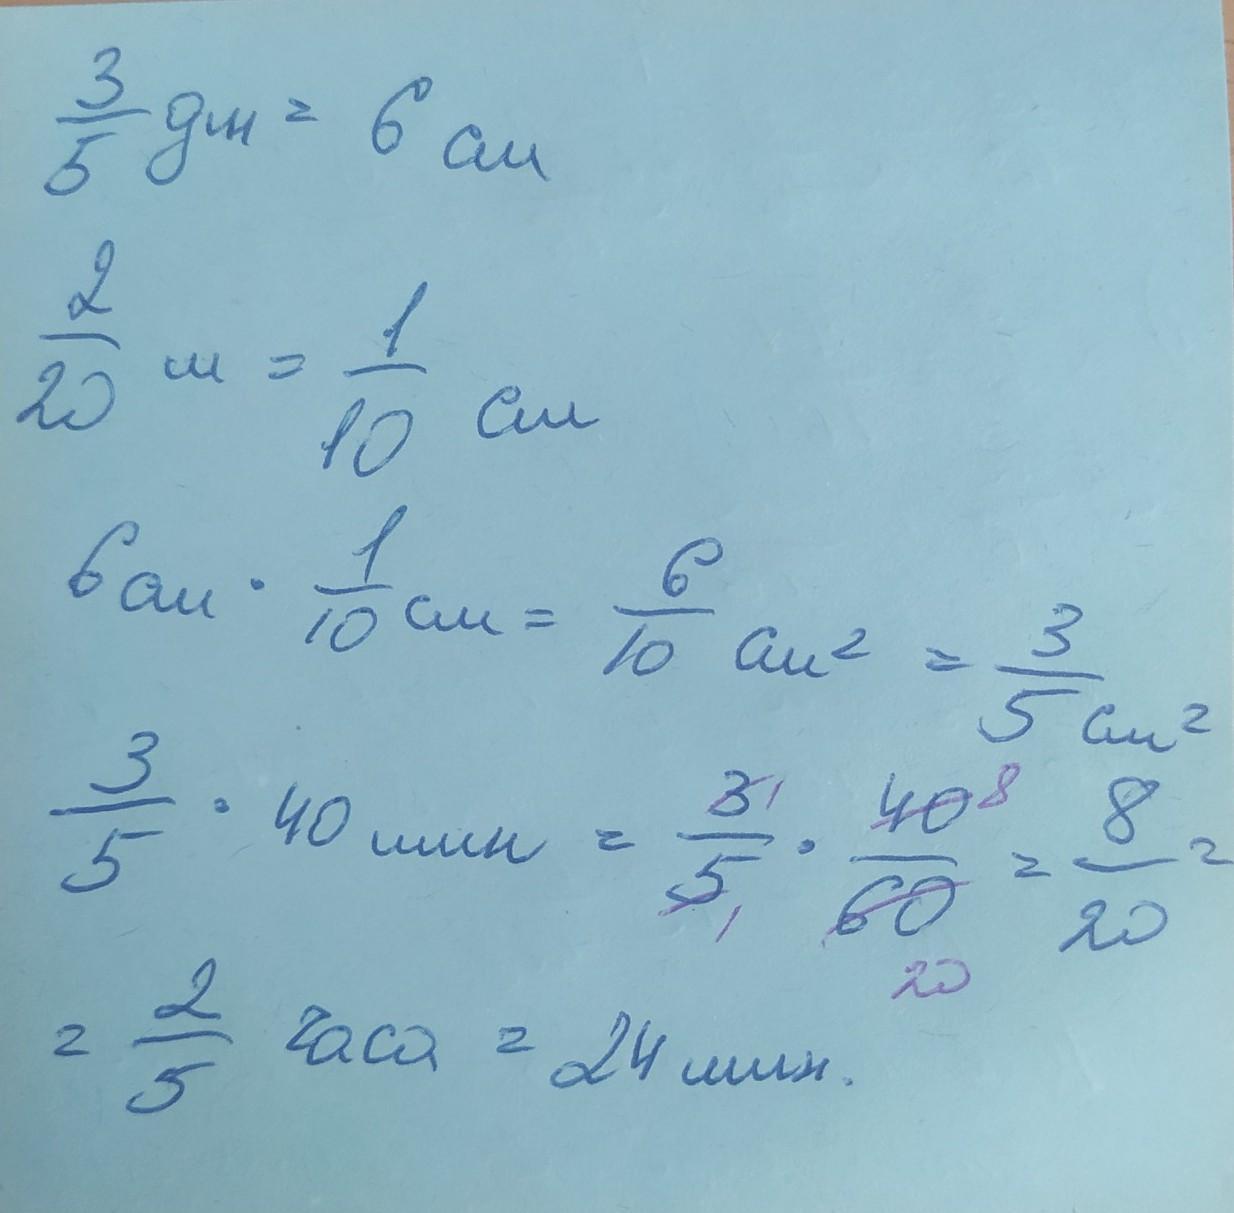 3/5 дм = 6 см
2/20 м = 1/10 см
6 см · 1/10 см = 6/10 см² = 3/5 см²
3/5 · 40 мин = 3/5 1 1 · 40/60 8 20 = 8/20 =
= 2/5 часа = 24 мин.